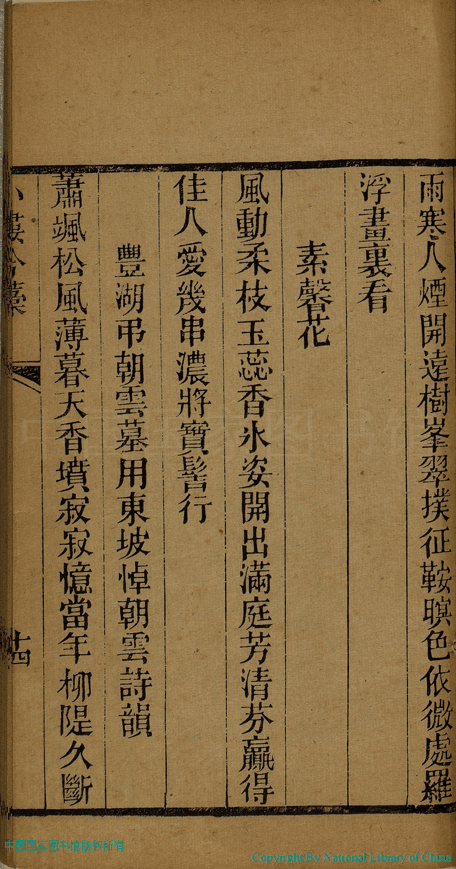 雨寒人煙開遠樹峯翠撲征鞍暝色依微處羅
浮畫裏看
素馨花
風動柔枝玉蕊香氷姿開出滿庭芳清芬贏得
佳人愛幾串濃將寳髻行
豐湖弔朝雲墓用東坡悼朝雲詩韻
蕭颯松風薄暮天香墳寂寂憶當年柳隄久斷
吟藁
十四
Copyright By National Library of China